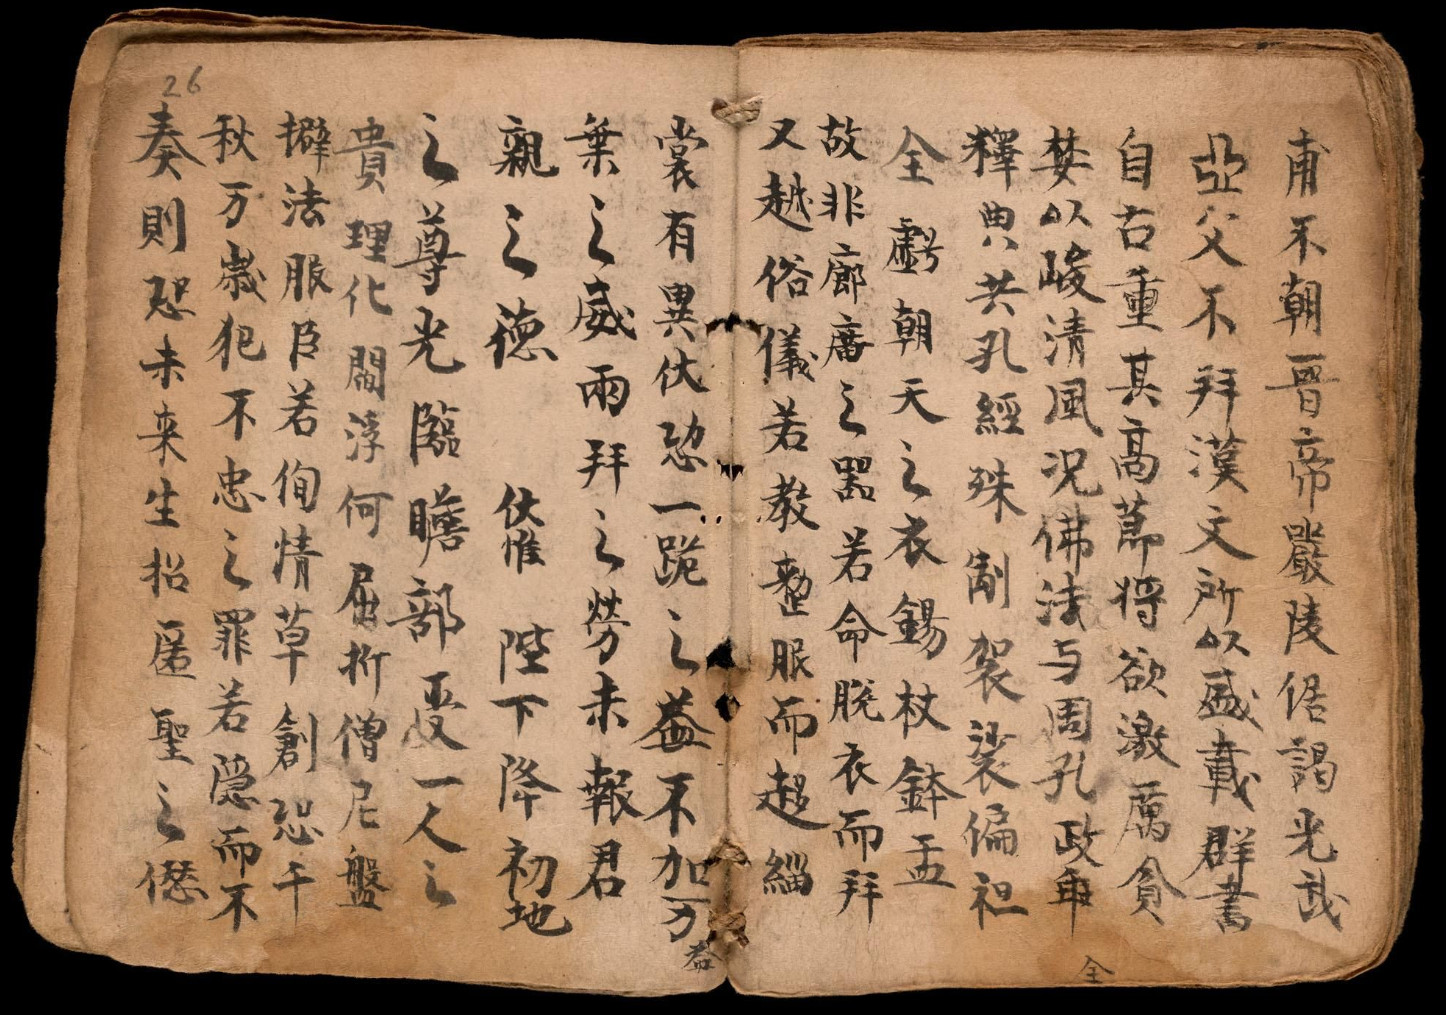 甫不朝晉帝嚴陵倨謁光武
亞父不拜漢文所以盛載群書
自古重其高莭將欲激厲貪
婪以峻清風況佛法与周孔政殊
全
釋典共孔經殊制袈裟偏袒
全虧朝天之衣錫杖鉢盂
故非廊廟之器若命脫衣而拜
又越俗儀若教整服而超緇
裳有異伏恐一跪之益不加万
葉之威兩拜之勞未報君
親之德 伏惟 陛下降初地
之尊光臨瞻部受一人之
貴理化閻浮何屈折僧尼盤
擗法服臣若徇情草創恐千
秋万歲犯不忠之罪若隱而不
奏則恐未來生招匿聖之愆
26